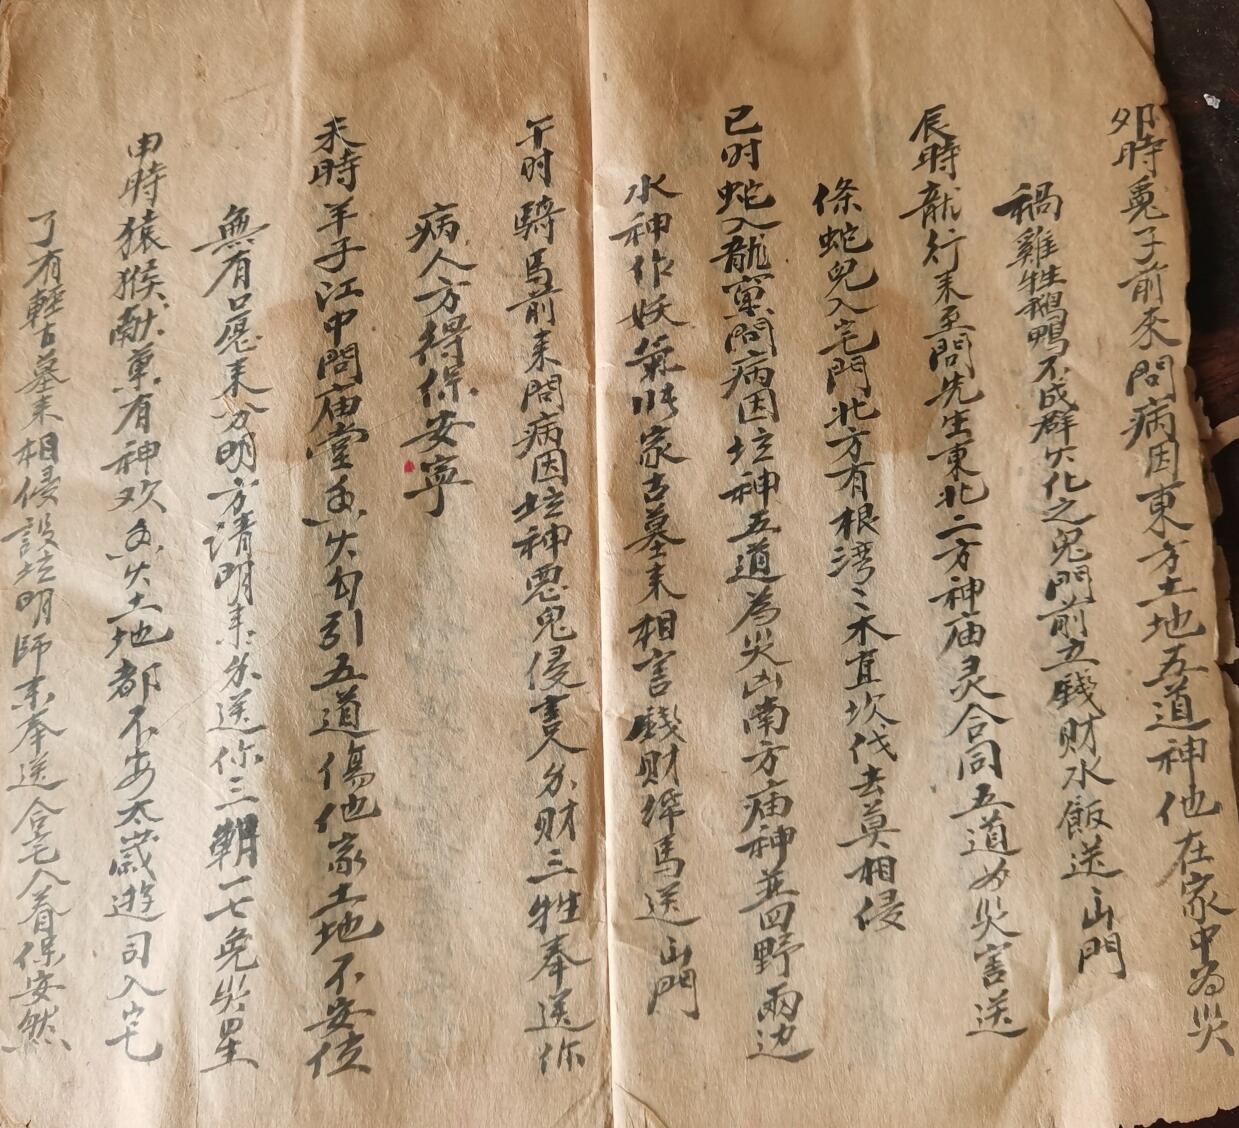 卯時兎子前来問病因東方土地五道神他在家中為災
禍雞牲鵝鴨不成群火化之鬼門前立錢财水飯送山門
辰時龍行来至問先生東北二方神庙灵合同五道为災害送
條蛇兒入宅門北方有根湾〻木直坎伐去莫相侵
已时蛇入龍窠問病因坛神五道為災山南方庙神並四野兩边
水神作妖氣家古墓来相害錢财馬送山門
午时騎馬前来問病因坛神悪鬼侵害人财三牲奉送你
病人方得保安寧
未時羊子江中問庙堂香火勾引五道傷他家土地不安位
無有口愿来分明方清明来送你三朝一七免災星
申時猿猴献菓有神欢香火土地都不安太歲遊司入宅
了有輕古墓来相侵設坛明師来奉送合宅人眷保安然